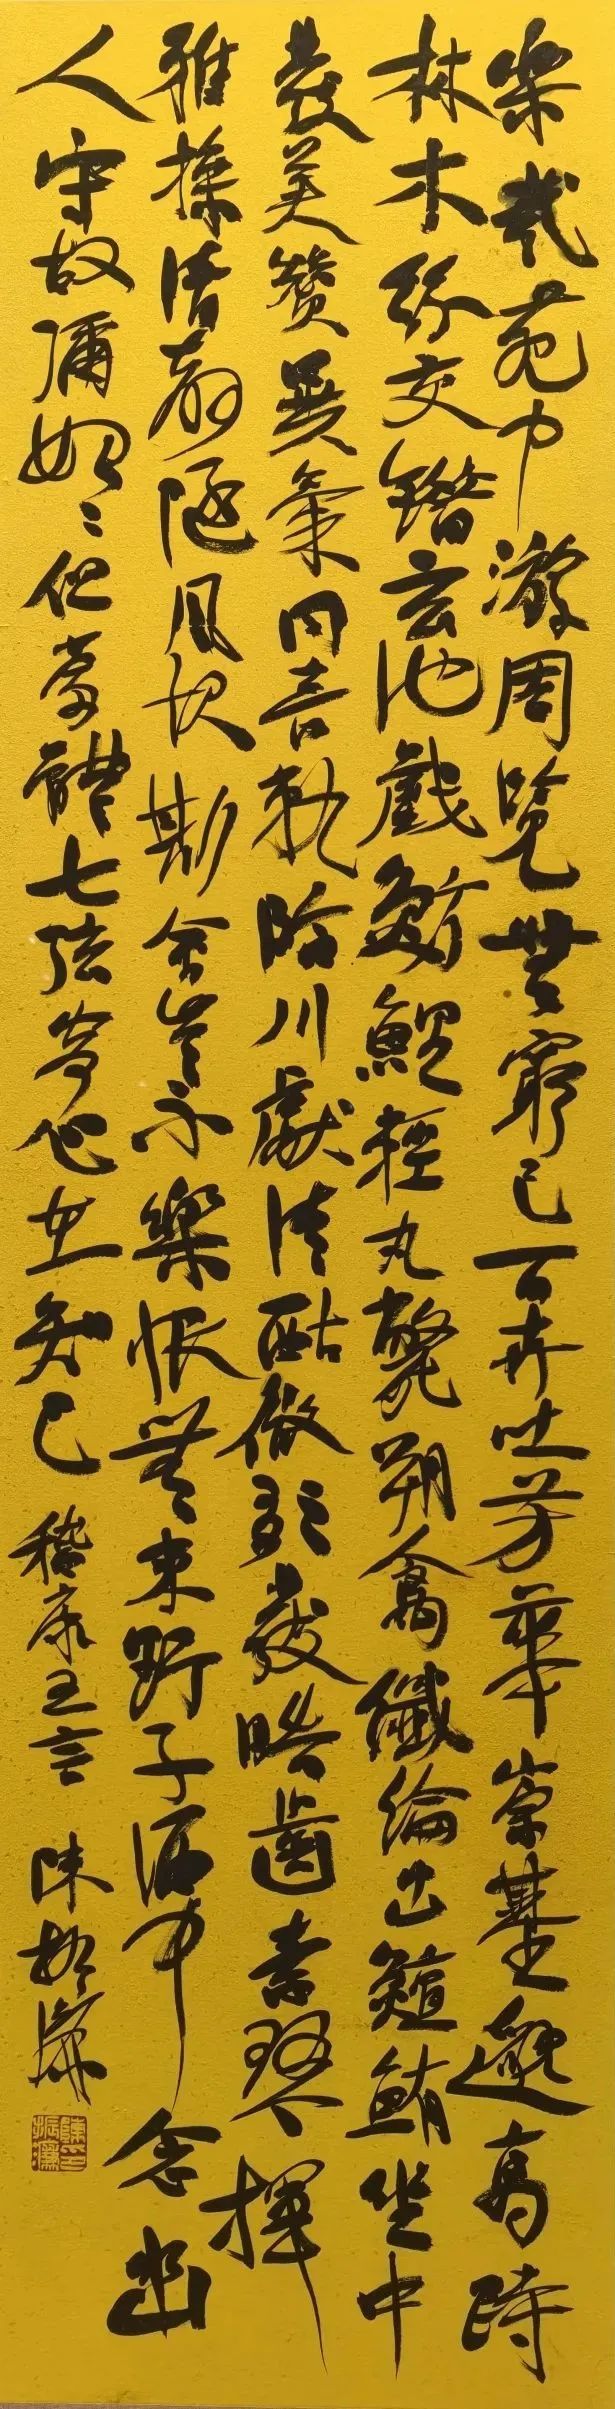 樂哉苑中游周覽無窮已百卉吐芳華崇基邈高跱
林木紛交錯玄池戲魴鯉輕丸斃翔禽纖綸出鱣鮪坐中
發美贊異氣同音軌臨川獻清酤微歌發皓齒素琴揮
雅操清聲隨風起斯會豈不樂恨無東野子酒中念幽
人守故彌始但當體七弦寄心在知己 嵇康五言 陳振濂
陳振濂印